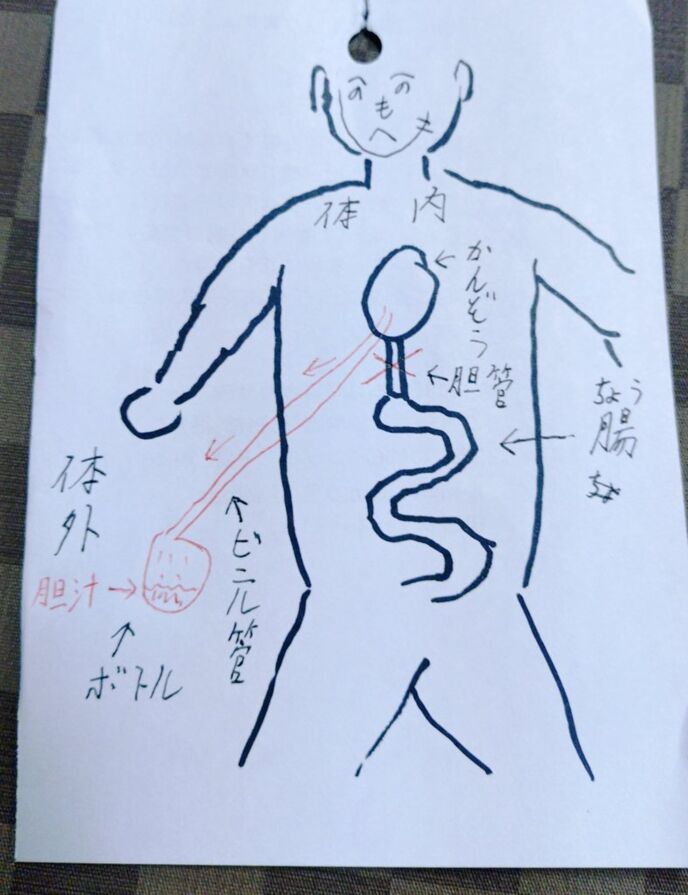 へ へ
の の
も
へ
体 内
かんぞう
胆管
ちょう
腸
体外
ビニル管
胆汁
ボトル